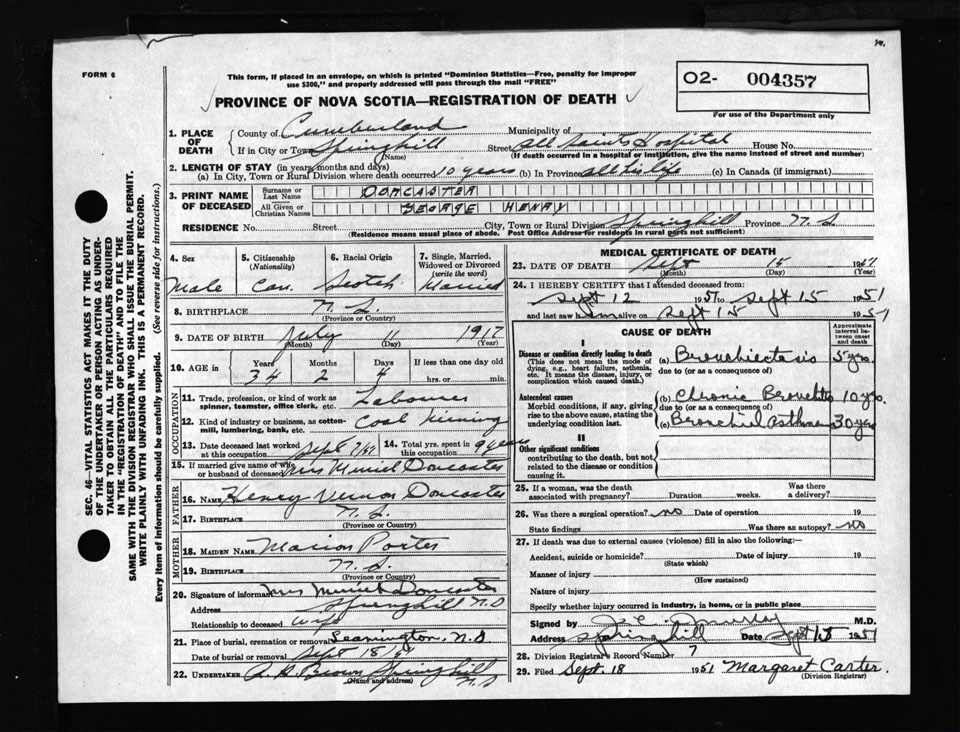 FORM 6
This form, if placed in an envelope, on which is printed "Dominion Statistics—Free, penalty for improper
use $300," and properly addressed will pass through the mail "FREE"
02- 004357
PROVINCE OF NOVA SCOTIA—REGISTRATION OF DEATH
For use of the Department only
1. PLACE OF DEATH
County of Cumberland Municipality of
If in City or Town Springhill (Name) Street All Saints Hospital House No.
(If death occurred in a hospital or institution, give the name instead of street and number)
2. LENGTH OF STAY (in years, months and days)
(a) In City, Town or Rural Division where death occurred 10 years (b) In Province all his life (c) In Canada (if immigrant)
3. PRINT NAME OF DECEASED
Surname or Last Name DONCASTER
All Given or Christian Names GEORGE HENRY
RESIDENCE No. Street City, Town or Rural Division Springhill Province N.S.
(Residence means usual place of abode. Post Office Address for residents in rural parts not sufficient)
SEC. 46—VITAL STATISTICS ACT MAKES IT THE DUTY
OF THE UNDERTAKER OR PERSON ACTING AS UNDER-
TAKER TO OBTAIN ALL THE PARTICULARS REQUIRED
IN THE "REGISTRATION OF DEATH" AND TO FILE THE
SAME WITH THE DIVISION REGISTRAR WHO SHALL ISSUE THE BURIAL PERMIT.
WRITE PLAINLY WITH UNFADING INK. THIS IS A PERMANENT RECORD.
Every item of information should be carefully supplied. (See reverse side for instructions.)
4. Sex Male
5. Citizenship (Nationality) Can.
6. Racial Origin Scotch
7. Single, Married, Widowed or Divorced (write the word) Married
8. BIRTHPLACE N.S.
(Province or Country)
9. DATE OF BIRTH July (Month) 11 (Day) 1917 (Year)
10. AGE in Years 34 Months 2 Days 4 If less than one day old hrs. or min.
OCCUPATION
11. Trade, profession, or kind of work as spinner, teamster, office clerk, etc. Labourer
12. Kind of industry or business, as cotton-mill, lumbering, bank, etc. Coal Mining
13. Date deceased last worked at this occupation Sept 7/51 14. Total yrs. spent in this occupation 9 years
15. If married give name of wife or husband of deceased Mrs Muriel Doncaster
FATHER
16. NAME Henry Vernon Doncaster
17. BIRTHPLACE N.S.
(Province or Country)
MOTHER
18. MAIDEN NAME Marion Porter
19. BIRTHPLACE N.S.
(Province or Country)
20. Signature of informant Mrs Muriel Doncaster
Address Springhill N.S
Relationship to deceased Wife
21. Place of burial, cremation or removal Leamington, N.S.
Date of burial or removal Sept 18/51
22. UNDERTAKER Brown Springhill N.S
(Name and address)
MEDICAL CERTIFICATE OF DEATH
23. DATE OF DEATH Sept (Month) 15 (Day) 1951 (Year)
24. I HEREBY CERTIFY that I attended deceased from:
Sept 12 1951 to Sept 15 1951
and last saw him alive on Sept 15 1951
CAUSE OF DEATH
Approximate interval between onset and death
I
Disease or condition directly leading to death (a) Bronchiectasis 5 yrs.
(This does not mean the mode of dying, e.g., heart failure, asthenia, etc. It means the disease, injury, or complication which caused death.)
due to (or as a consequence of)
Antecedent causes (b) Chronic Bronchitis 10 yrs.
Morbid conditions, if any, giving rise to the above cause, stating the underlying condition last.
due to (or as a consequence of)
(c) Bronchial Asthma 30 yrs
II
Other significant conditions
contributing to the death, but not related to the disease or condition causing it.
25. If a woman, was the death associated with pregnancy? Duration weeks. Was there a delivery?
26. Was there a surgical operation? no Date of operation 19
State findings Was there an autopsy? no
27. If death was due to external causes (violence) fill in also the following:—
Accident, suicide or homicide? Date of injury 19
(State which)
Manner of injury
(How sustained)
Nature of injury
Specify whether injury occurred in industry, in home, or in public place
Signed by M.D.
Address Springhill Date Sept 15 1951
28. Division Registrar's Record Number 7
29. Filed Sept. 18 1951 Margaret Carter.
(Division Registrar)